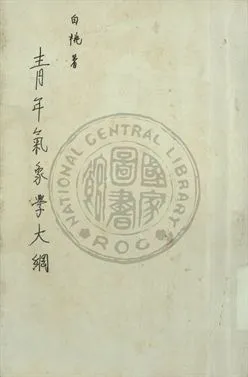 白桃著
青年氣象學大綱
NATIONAL CENTRAL LIBRARY
國家圖書館
ROC